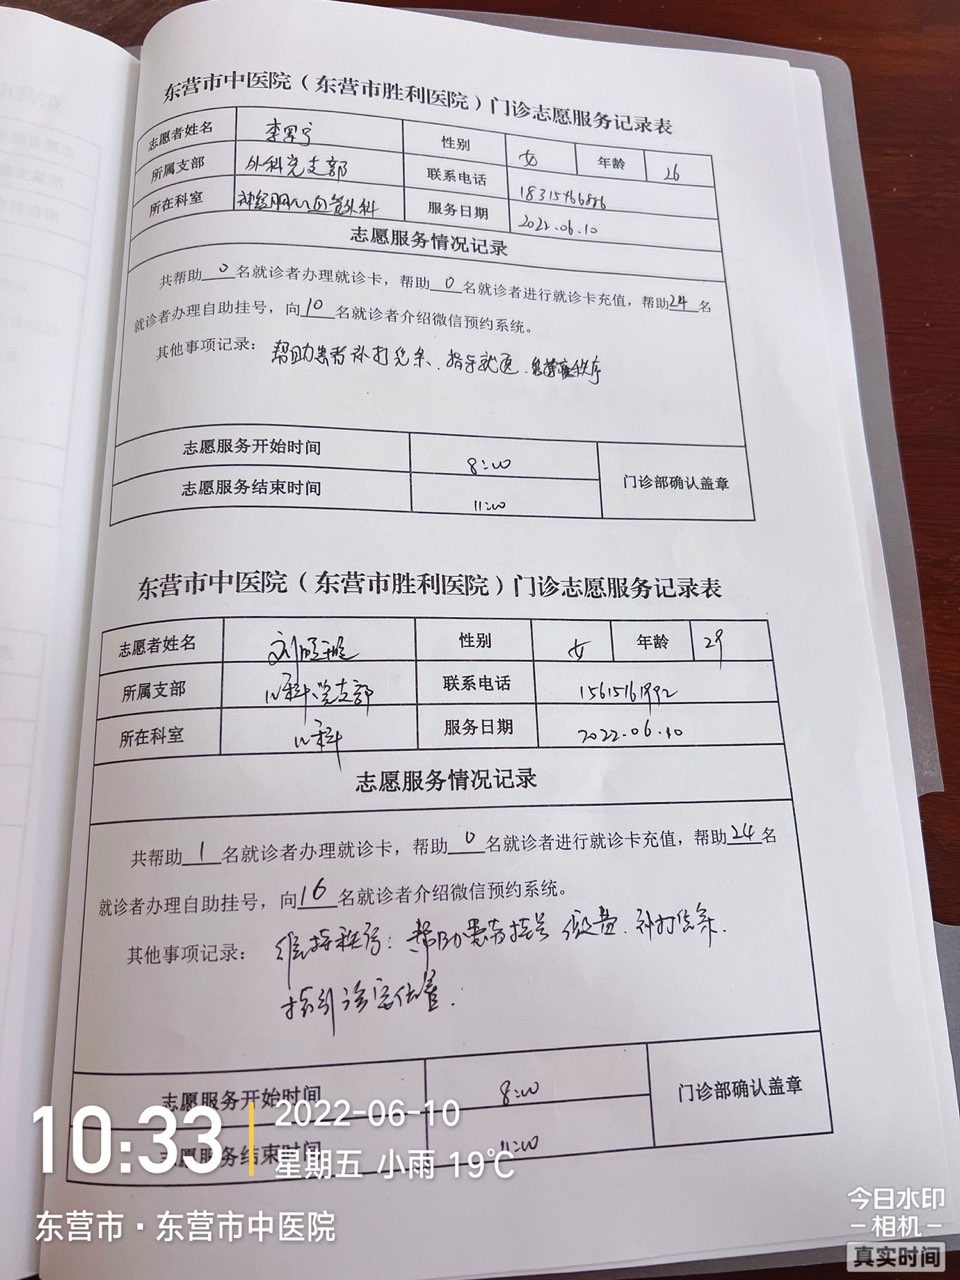 东营市中医院（东营市胜利医院）门诊志愿服务记录表
志愿者姓名 李 性别 女 年龄 26
所属支部 外科党支部 联系电话
所在科室 神经 血管外科 服务日期 2022.06.10
志愿服务情况记录
共帮助0名就诊者办理就诊卡，帮助0名就诊者进行就诊卡充值，帮助24名
就诊者办理自助挂号，向10名就诊者介绍微信预约系统。
其他事项记录：帮助患者补打 条、指导就医、 秩序
志愿服务开始时间 8:00
门诊部确认盖章
志愿服务结束时间 11:00
东营市中医院（东营市胜利医院）门诊志愿服务记录表
志愿者姓名 刘 性别 女 年龄 29
所属支部 儿科党支部 联系电话 15615161992
所在科室 儿科 服务日期 2022.06.10
志愿服务情况记录
共帮助1名就诊者办理就诊卡，帮助0名就诊者进行就诊卡充值，帮助24名
就诊者办理自助挂号，向16名就诊者介绍微信预约系统。
其他事项记录：维持秩序：帮助患者挂号 缴费．补打 条．
指引诊室位置．
志愿服务开始时间 8:00
门诊部确认盖章
志愿服务结束时间 11:00
10:33 2022-06-10
星期五 小雨 19℃
东营市·东营市中医院
今日水印
相机
真实时间